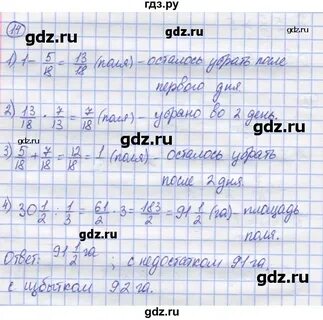 gdz.ru
19 gdz.ru gdz.ru
1) 1 - 5/18 = 13/18 (поля) - осталось убрать после
первого дня.
gdz.ru gdz.ru
2) 13/18 · 7/13 = 7/18 (поля) - убрано во 2 день.
gdz.ru gdz.ru
3) 5/18 + 7/18 = 12/18 = 1 (поля) - осталось убрать
после 2 дня.
gdz.ru gdz.ru
4) 30 1/2 : 1/3 = 61/2 · 3 = 183/2 = 91 1/2 (га) - площадь
поля.
gdz.ru gdz.ru
Ответ: 91 1/2 га ; с недостатком 91 га,
с избытком 92 га.
gdz.ru gdz.ru